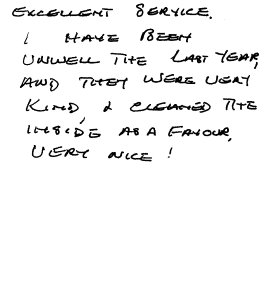 EXCELLENT SERVICE.
I HAVE BEEN
UNWELL THE LAST YEAR,
AND THEY WERE VERY
KIND, & CLEANED THE
INSIDE AS A FAVOUR,
VERY NICE !